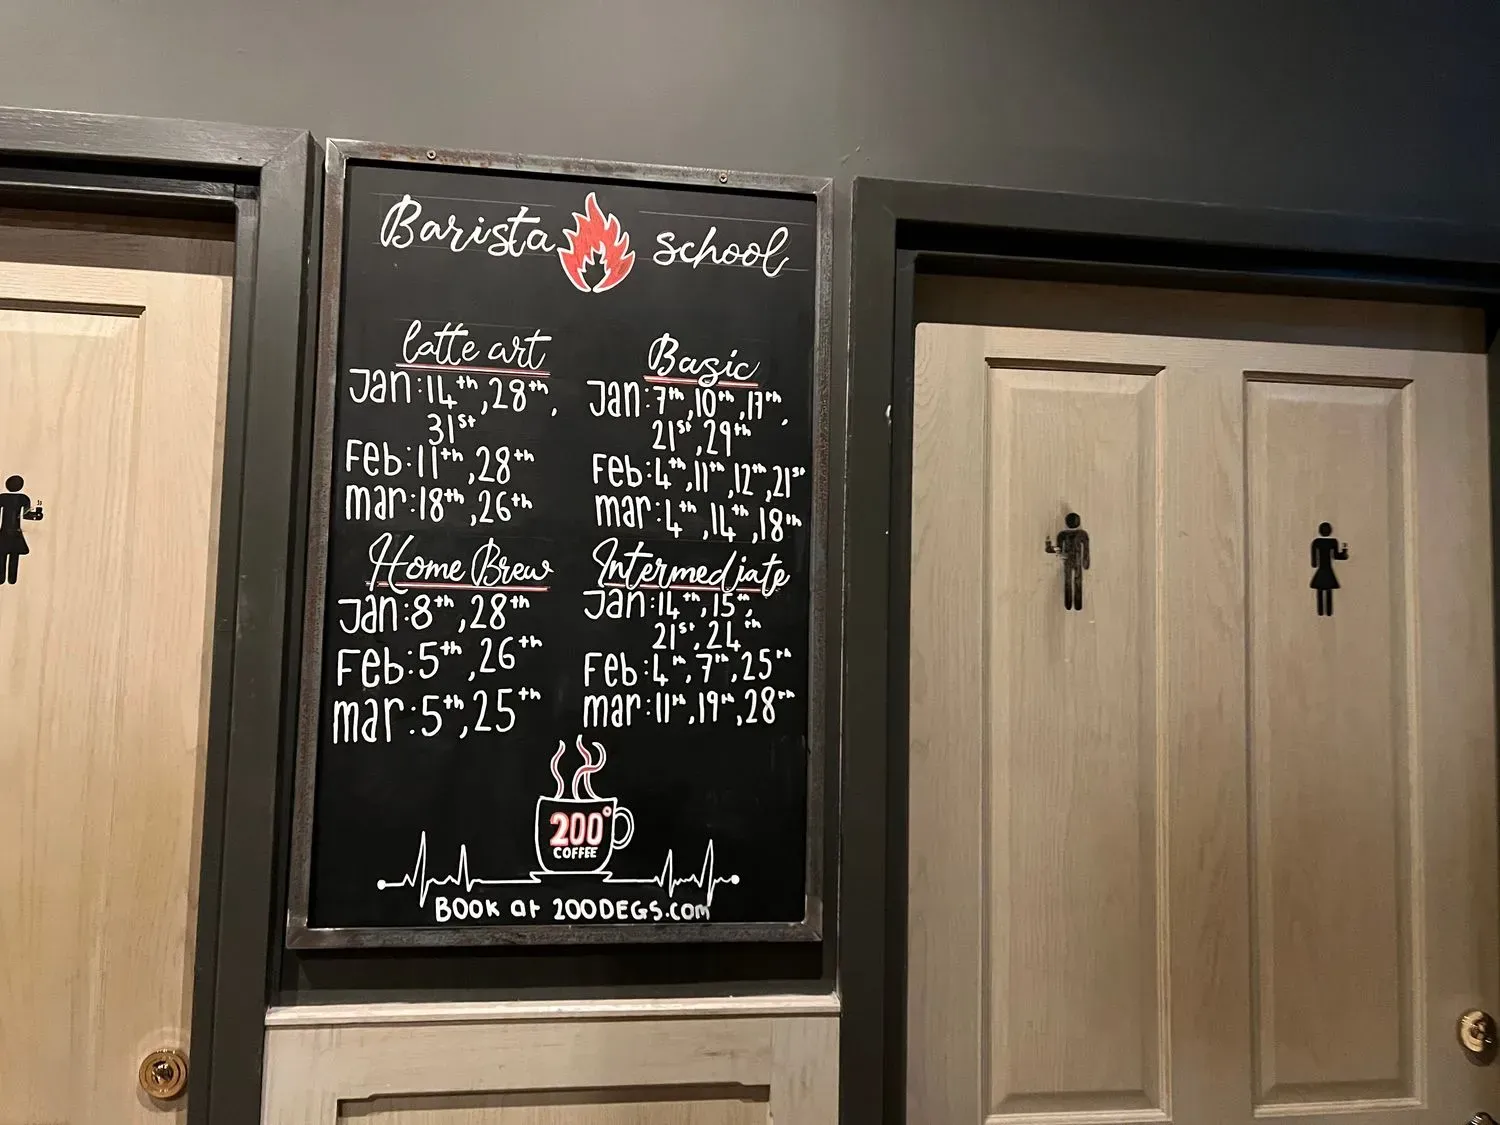 Barista school
latte art
Jan:14th,28th,
31st
Feb:11th,28th
mar:18th,26th
Basic
Jan:7th,10th,17th,
21st,29th
Feb:4th,11th,12th,21st
mar:4th,14th,18th
Home Brew
Jan:8th,28th
Feb:5th,26th
mar:5th,25th
Intermediate
Jan:14th,15th,
21st,24th
Feb:4th,7th,25th
mar:11th,19th,28th
200°
COFFEE
BOOK at 200DEGS.com